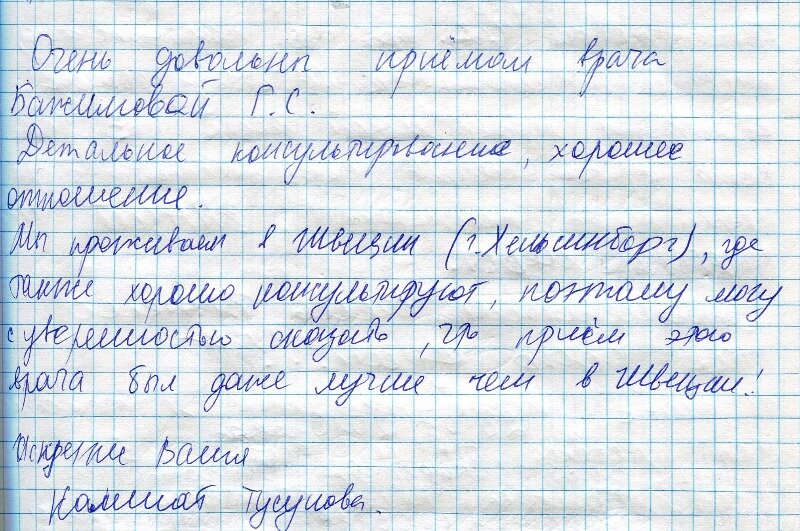 Очень довольны приёмом врача
Бажимовой Г.С.
Детальное консультирование, хорошее
отношение.
Мы проживаем в Швеции (г.Хельшинборг), где
также хорошо консультируют, поэтому могу
с уверенностью сказать, что приём этого
врача был даже лучше чем в Швеции!
Искренне Ваша
Камшат Тусупова.